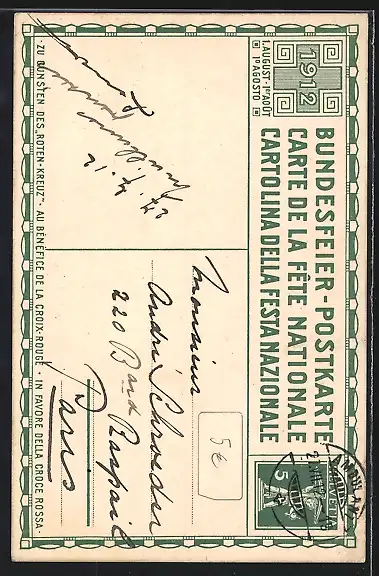 1912
1. AUGUST - 1ER AOÛT
1O AGOSTO
BUNDESFEIER-POSTKARTE
CARTE DE LA FÊTE NATIONALE
CARTOLINA DELLA FESTA NAZIONALE
5
HELVETIA
Monsieur
André Schroeder
220 Bard Raspail
Paris
5€
-ZU GUNSTEN DES „ROTEN-KREUZ" - AU BÉNÉFICE DE LA CROIX-ROUGE - IN FAVORE DELLA CROCE ROSSA-